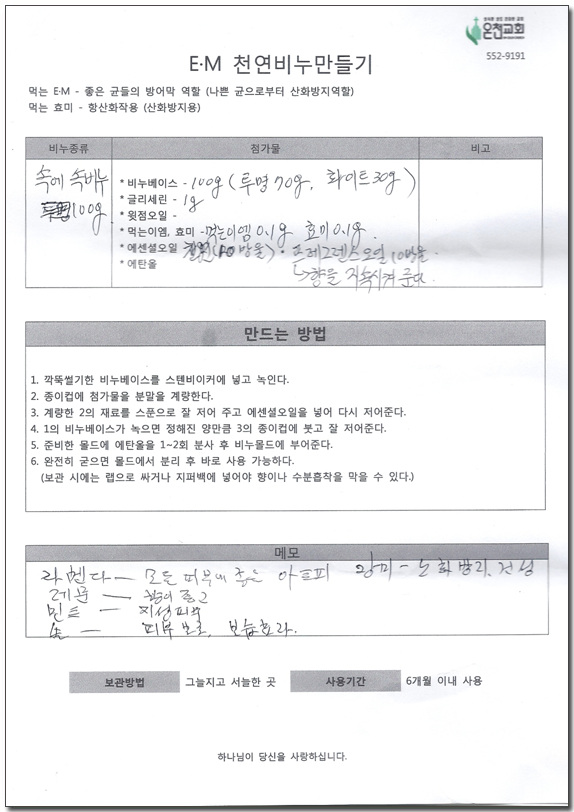 온천교회
552-9191
E·M 천연비누만들기
먹는 E·M - 좋은 균들의 방어막 역할 (나쁜 균으로부터 산화방지역할)
먹는 효미 - 항산화작용 (산화방지용)
비누종류 첨가물 비고
속에 속비누
100g
* 비누베이스 - 100g (투명 70g, 화이트 30g)
* 글리세린 - 1g
* 윗점오일 -
* 먹는이엠, 효미 - 먹는이엠 0.1g, 효미 0.1g.
* 에센셜오일 (10방울) · 프레그렌스오일 10방울
* 에탄올
↳ 향을 지속시켜 준다.
만드는 방법
1. 깍뚝썰기한 비누베이스를 스텐비이커에 넣고 녹인다.
2. 종이컵에 첨가물을 분말을 계량한다.
3. 계량한 2의 재료를 스푼으로 잘 저어 주고 에센셜오일을 넣어 다시 저어준다.
4. 1의 비누베이스가 녹으면 정해진 양만큼 3의 종이컵에 붓고 잘 저어준다.
5. 준비한 몰드에 에탄올을 1~2회 분사 후 비누몰드에 부어준다.
6. 완전히 굳으면 몰드에서 분리 후 바로 사용 가능하다.
(보관 시에는 랩으로 싸거나 지퍼백에 넣어야 향이나 수분흡착을 막을 수 있다.)
메모
라벤다 — 모든 피부에 좋은 아토피 장미 - 노화방지, 건성
레몬 — 향이 좋고
민트 — 지성피부
숯 — 피부보호, 보습효과.
보관방법 그늘지고 서늘한 곳 사용기간 6개월 이내 사용
하나님이 당신을 사랑하십니다.